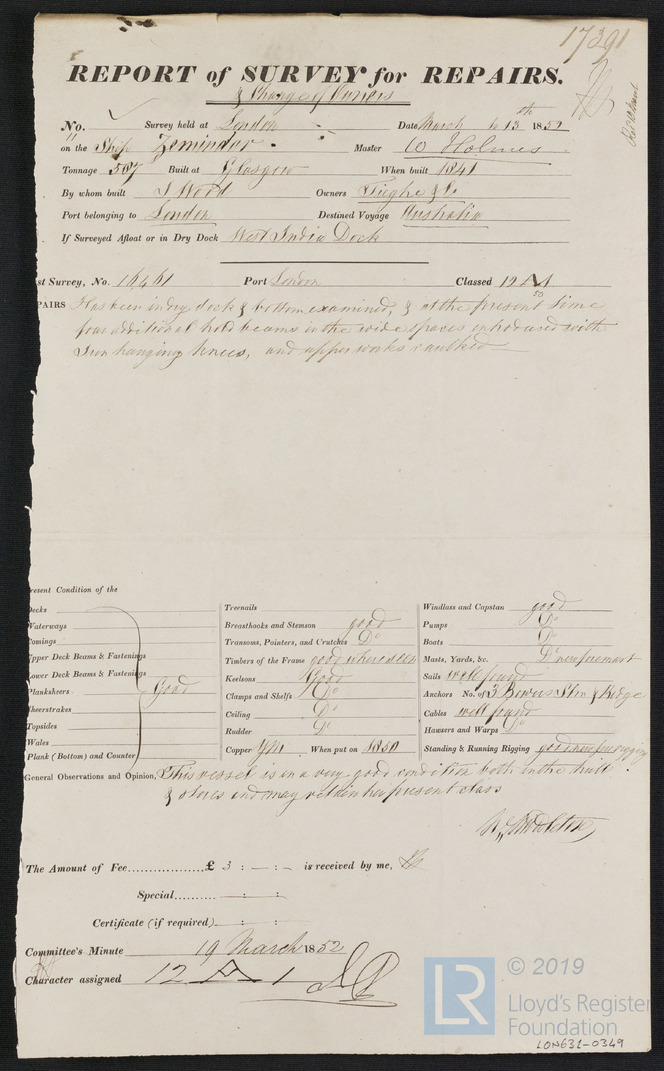 17391
REPORT of SURVEY for REPAIRS.
& Change of Owners
No. Survey held at London Date March 6 13th 1852
on the Ship Zemindar Master W Holmes
Tonnage 587 Built at Glasgow When built 1841
By whom built J Wood Owners Tighe & Co
Port belonging to London Destined Voyage Australia
If Surveyed Afloat or in Dry Dock West India Dock
st Survey, No. 16461 Port London Classed 12 A 1
50
PAIRS Has been in dry dock & bottom examined, & at the present time
four additional hold beams in the wide spaces introduced with
Iron hanging knees, and upper works caulked
resent Condition of the
Decks
Waterways
Comings
Upper Deck Beams & Fastenings
Lower Deck Beams & Fastenings
Planksheers Good
Sheerstrakes
Topsides
Wales
Plank (Bottom) and Counter
Treenails
Breasthooks and Stemson good
Transoms, Pointers, and Crutches Do
Timbers of the Frame good where seen
Keelsons Good
Clamps and Shelfs Do
Ceiling Do
Rudder Do
Copper YM When put on 1850
Windlass and Capstan good
Pumps Do
Boats Do
Masts, Yards, &c. Do new foremast
Sails well found
Anchors No. of 3 Bowers Strm & Kedge
Cables well found
Hawsers and Warps Do
Standing & Running Rigging good new rigging
General Observations and Opinion, This vessel is in a very good condition both in the hull
& stores and may retain her present class
The Amount of Fee................. £ 3 : — : - is received by me,
Special.......... : :
Certificate (if required). : :
Committee's Minute 19 March 1852
Character assigned 12 A 1
LR © 2019
Lloyd's Register
Foundation
LON631-0349